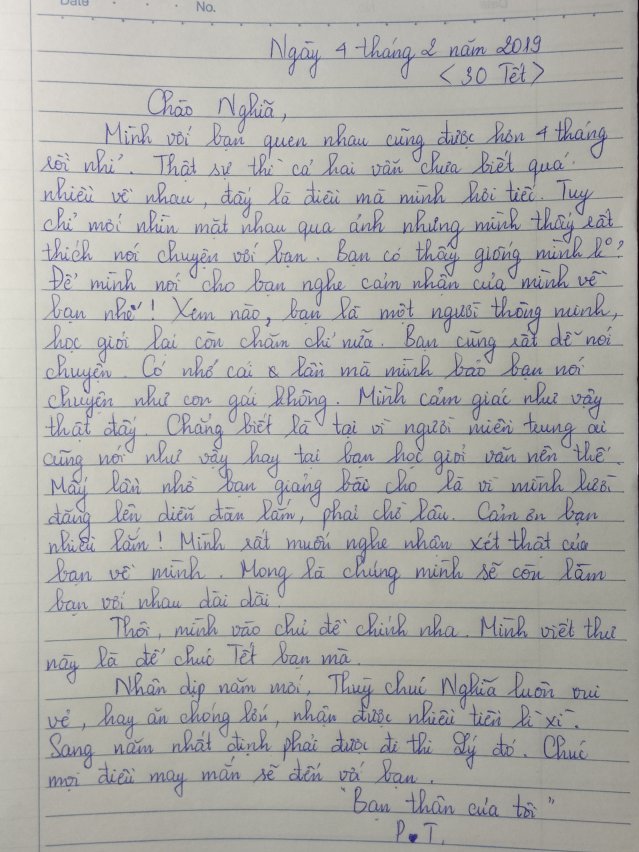 Date
No.
Ngày 4 tháng 2 năm 2019
<30 Tết>
Chào Nghĩa,
Mình với bạn quen nhau cũng được hơn 4 tháng
rồi nhỉ. Thật sự thì cả hai vẫn chưa biết quá
nhiều về nhau, đấy là điều mà mình hơi tiếc. Tuy
chỉ mới nhìn mặt nhau qua ảnh nhưng mình thấy rất
thích nói chuyện với bạn. Bạn có thấy giống mình ko?
Để mình nói cho bạn nghe cảm nhận của mình về
bạn nhé! Xem nào, bạn là một người thông minh,
học giỏi lại còn chăm chỉ nữa. Bạn cũng rất dễ nói
chuyện. Có nhớ cái lần mà mình bảo bạn nói
chuyện như con gái không. Mình cảm giác như vậy
thật đấy. Chẳng biết là tại vì người miền trung ai
cũng nói như vậy hay tại bạn học giỏi văn nên thế.
Mấy lần nhờ bạn giảng bài cho là vì mình lười
đăng lên diễn đàn lắm, phải chờ lâu. Cảm ơn bạn
nhiều lắm! Mình rất muốn nghe nhận xét thật của
bạn về mình. Mong là chúng mình sẽ còn làm
bạn với nhau dài dài.
Thôi, mình vào chủ đề chính nha. Mình viết thư
này là để chúc Tết bạn mà.
Nhân dịp năm mới, Thuỳ chúc Nghĩa luôn vui
vẻ, hay ăn chóng lớn, nhận được nhiều tiền lì xì.
Sang năm nhất định phải được đi thi Lý đó. Chúc
mọi điều may mắn sẽ đến với bạn.
"Bạn thân của tôi"
P.T.